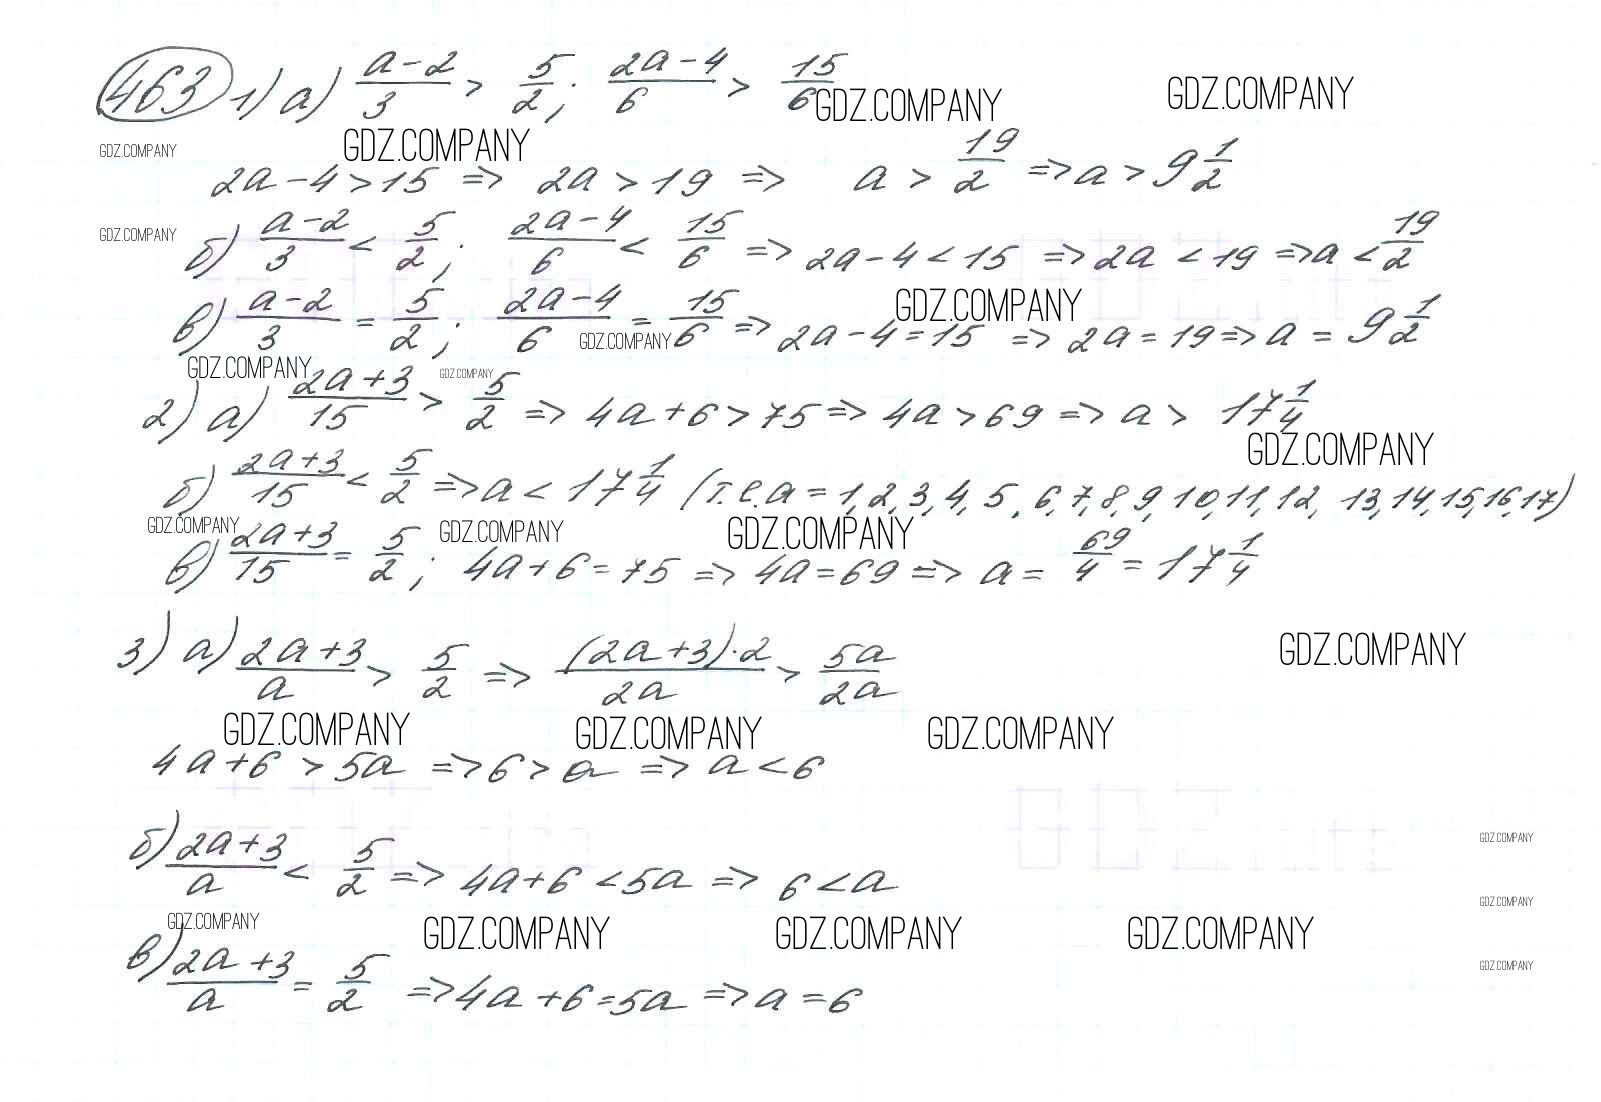 463 1) а) (a-2)/3 > 5/2; (2a-4)/6 > 15/6
GDZ.COMPANY GDZ.COMPANY
GDZ.COMPANY GDZ.COMPANY
2a-4>15 => 2a>19 => a > 19/2 => a > 9 1/2
GDZ.COMPANY
б) (a-2)/3 < 5/2; (2a-4)/6 < 15/6 => 2a-4<15 => 2a<19 => a < 19/2
GDZ.COMPANY
в) (a-2)/3 = 5/2; (2a-4)/6 = 15/6 => 2a-4=15 => 2a=19 => a = 9 1/2
GDZ.COMPANY
GDZ.COMPANY GDZ.COMPANY
2) а) (2a+3)/15 > 5/2 => 4a+6>75 => 4a>69 => a > 17 1/4
GDZ.COMPANY
б) (2a+3)/15 < 5/2 => a < 17 1/4 (т.е. a = 1, 2, 3, 4, 5, 6, 7, 8, 9, 10, 11, 12, 13, 14, 15, 16, 17)
GDZ.COMPANY GDZ.COMPANY GDZ.COMPANY
в) (2a+3)/15 = 5/2; 4a+6=75 => 4a=69 => a = 69/4 = 17 1/4
3) а) (2a+3)/a > 5/2 => ((2a+3)·2)/2a > 5a/2a
GDZ.COMPANY
GDZ.COMPANY GDZ.COMPANY GDZ.COMPANY
4a+6 > 5a => 6 > a => a < 6
GDZ.COMPANY
б) (2a+3)/a < 5/2 => 4a+6<5a => 6<a
GDZ.COMPANY
GDZ.COMPANY GDZ.COMPANY GDZ.COMPANY GDZ.COMPANY
GDZ.COMPANY
в) (2a+3)/a = 5/2 => 4a+6=5a => a=6